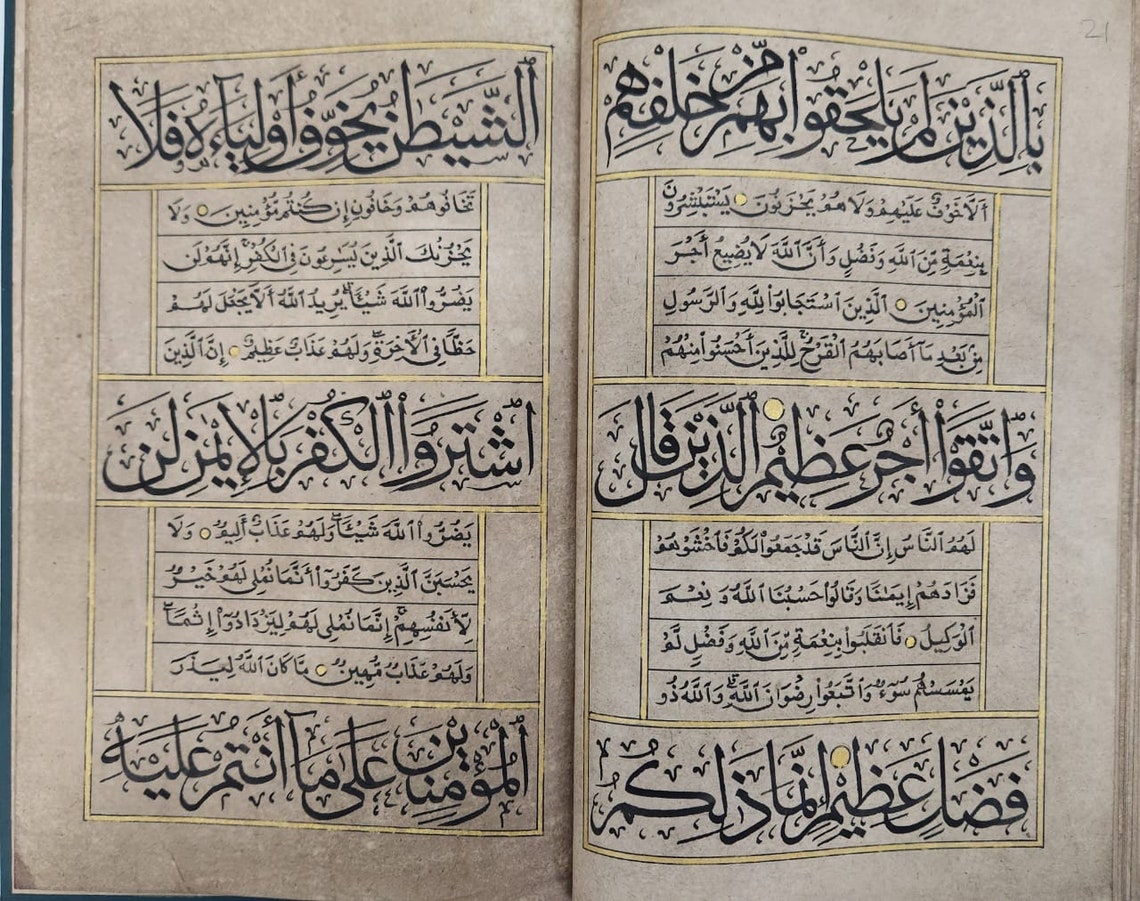 21
بِالَّذِينَ لَمْ يَلْحَقُوا بِهِم مِّنْ خَلْفِهِمْ
أَلَّا خَوْفٌ عَلَيْهِمْ وَلَا هُمْ يَحْزَنُونَ ○ يَسْتَبْشِرُونَ
بِنِعْمَةٍ مِّنَ اللَّهِ وَفَضْلٍ وَأَنَّ اللَّهَ لَا يُضِيعُ أَجْرَ
الْمُؤْمِنِينَ ○ الَّذِينَ اسْتَجَابُوا لِلَّهِ وَالرَّسُولِ
مِنْ بَعْدِ مَا أَصَابَهُمُ الْقَرْحُ لِلَّذِينَ أَحْسَنُوا مِنْهُمْ
وَاتَّقَوْا أَجْرٌ عَظِيمٌ ○ الَّذِينَ قَالَ
لَهُمُ النَّاسُ إِنَّ النَّاسَ قَدْ جَمَعُوا لَكُمْ فَاخْشَوْهُمْ
فَزَادَهُمْ إِيمَٰنًا وَقَالُوا حَسْبُنَا اللَّهُ وَنِعْمَ
الْوَكِيلُ ○ فَانْقَلَبُوا بِنِعْمَةٍ مِّنَ اللَّهِ وَفَضْلٍ لَّمْ
يَمْسَسْهُمْ سُوءٌ وَاتَّبَعُوا رِضْوَانَ اللَّهِ وَاللَّهُ ذُو
فَضْلٍ عَظِيمٍ ○ إِنَّمَا ذَٰلِكُمُ
الشَّيْطَٰنُ يُخَوِّفُ أَوْلِيَاءَهُ فَلَا
تَخَافُوهُمْ وَخَافُونِ إِنْ كُنْتُمْ مُّؤْمِنِينَ ○ وَلَا
يَحْزُنْكَ الَّذِينَ يُسَٰرِعُونَ فِي الْكُفْرِ إِنَّهُمْ لَنْ
يَضُرُّوا اللَّهَ شَيْئًا يُرِيدُ اللَّهُ أَلَّا يَجْعَلَ لَهُمْ
حَظًّا فِي الْآخِرَةِ وَلَهُمْ عَذَابٌ عَظِيمٌ ○ إِنَّ الَّذِينَ
اشْتَرَوُا الْكُفْرَ بِالْإِيمَٰنِ لَنْ
يَضُرُّوا اللَّهَ شَيْئًا وَلَهُمْ عَذَابٌ أَلِيمٌ ○ وَلَا
يَحْسَبَنَّ الَّذِينَ كَفَرُوا أَنَّمَا نُمْلِي لَهُمْ خَيْرٌ
لِّأَنْفُسِهِمْ إِنَّمَا نُمْلِي لَهُمْ لِيَزْدَادُوا إِثْمًا
وَلَهُمْ عَذَابٌ مُّهِينٌ ○ مَّا كَانَ اللَّهُ لِيَذَرَ
الْمُؤْمِنِينَ عَلَىٰ مَا أَنْتُمْ عَلَيْهِ